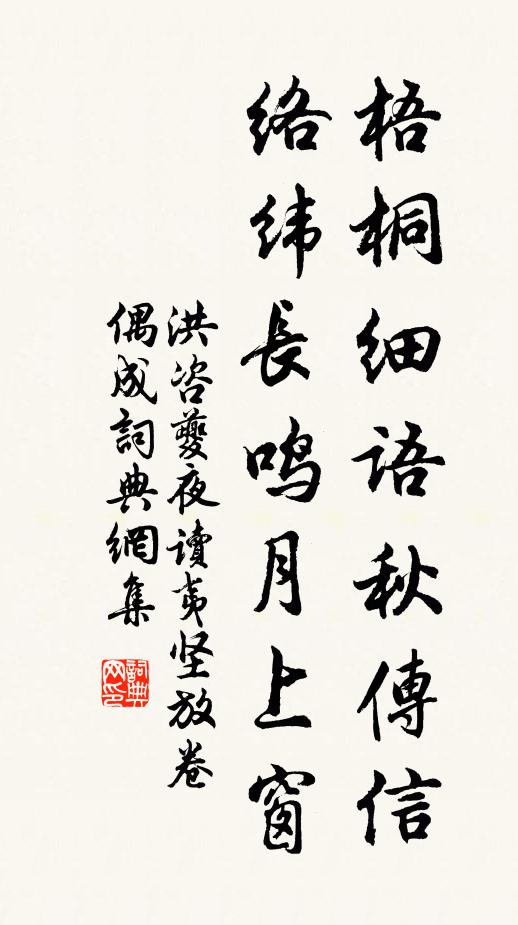 梧桐细语秋傳信
络纬長鸣月上窗
洪咨夔夜读夷坚放卷
偶成詞典網集
詞典网印